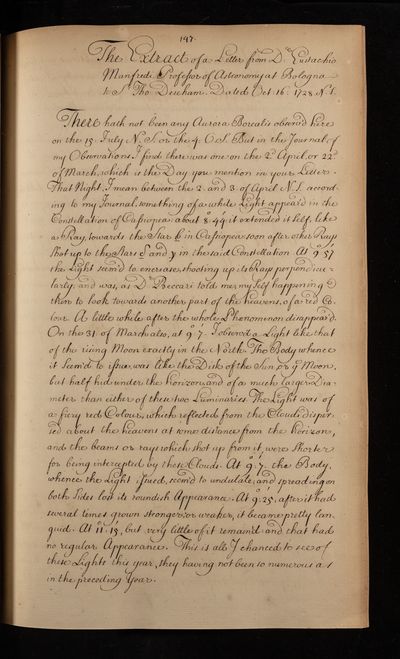 197.
The Extract of a Letter from D.r Eustachio
Manfredi Professor of Astronomy at Bologna
to S.r Tho. Dereham. Dated Oct. 16. 1728. N.S.
There hath not been any Aurora Borealis observ'd here
on the 15. July N.S. or the 4. O.S. But in the Journal of
my Observations I find there was one on the 2.d April, or 22.d
of March, which is the Day you mention in your Letter.
That Night, I mean between the 2. and 3. of April N.S. accord-
ing to my Journal, something of a white Light appear'd in the
Constellation of Cassiopea about 8. 44 it extended it self, like
a Ray, towards the Star in Cassiopea soon after other Rays
shot up to the Stars and γ in the said Constellation. At 9. 57
the Light seem'd to encrease, shooting up its Rays perpendicu-
larly, and was, as D.r Beccari told me, my self happening
then to look towards another part of the heavens, of a red Co-
lour. A little while after the whole Phænomenon disappear'd.
On the 31. of March also, at 9. 7. I observed a Light like that
of the rising Moon exactly in the North. The Body whence
it seem'd to issue, was like the Disk of the Sun, or y.e Moon,
but half hid under the horizon, and of a much larger Dia-
meter than either of these two Luminaries. The Light was of
a fiery red Colour, which reflected from the Clouds disper-
sed about the heavens at some distance from the horizon,
and the beams or rays which shot up from it, were shorter
for being intercepted by these Clouds. At 9. 7. the Body,
whence the Light issued, seem'd to undulate, and spreading on
both sides lost its roundish Appearance. At 9. 25, after it had
several times grown stronger or weaker, it became pretty lan-
guid. At 11. 15, but very little of it remain'd and that had
no regular Appearance. This is all I chanced to see of
these Lights this year, they having not been so numerous as
in the preceding Year.